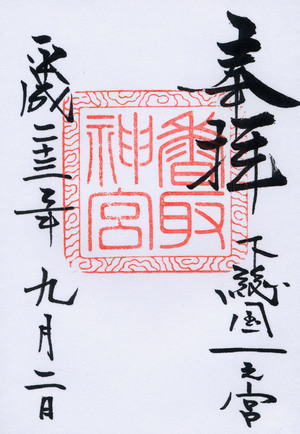 奉拝
下総国一之宮
香取
神宮
平成二十三年九月二日